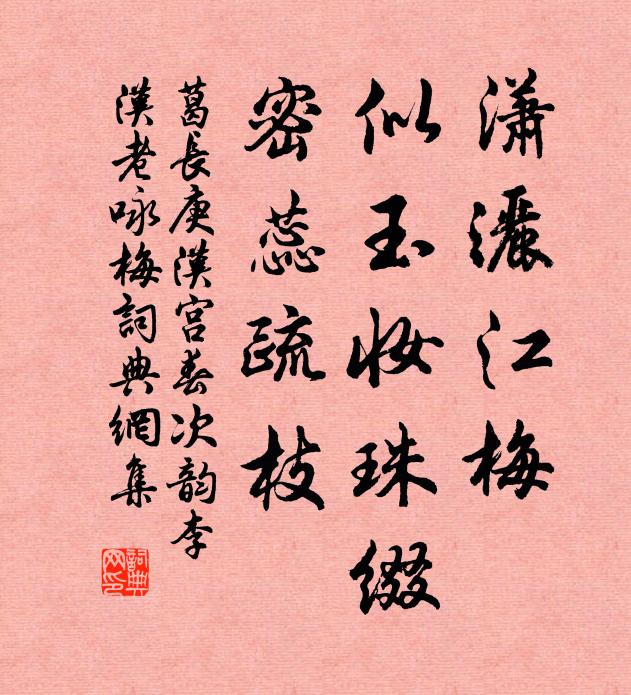 瀟灑江梅
似玉妆珠綴
密蕊疏枝
葛長庚漢宮春次韵李
漢老咏梅詞典網集
詞典网印